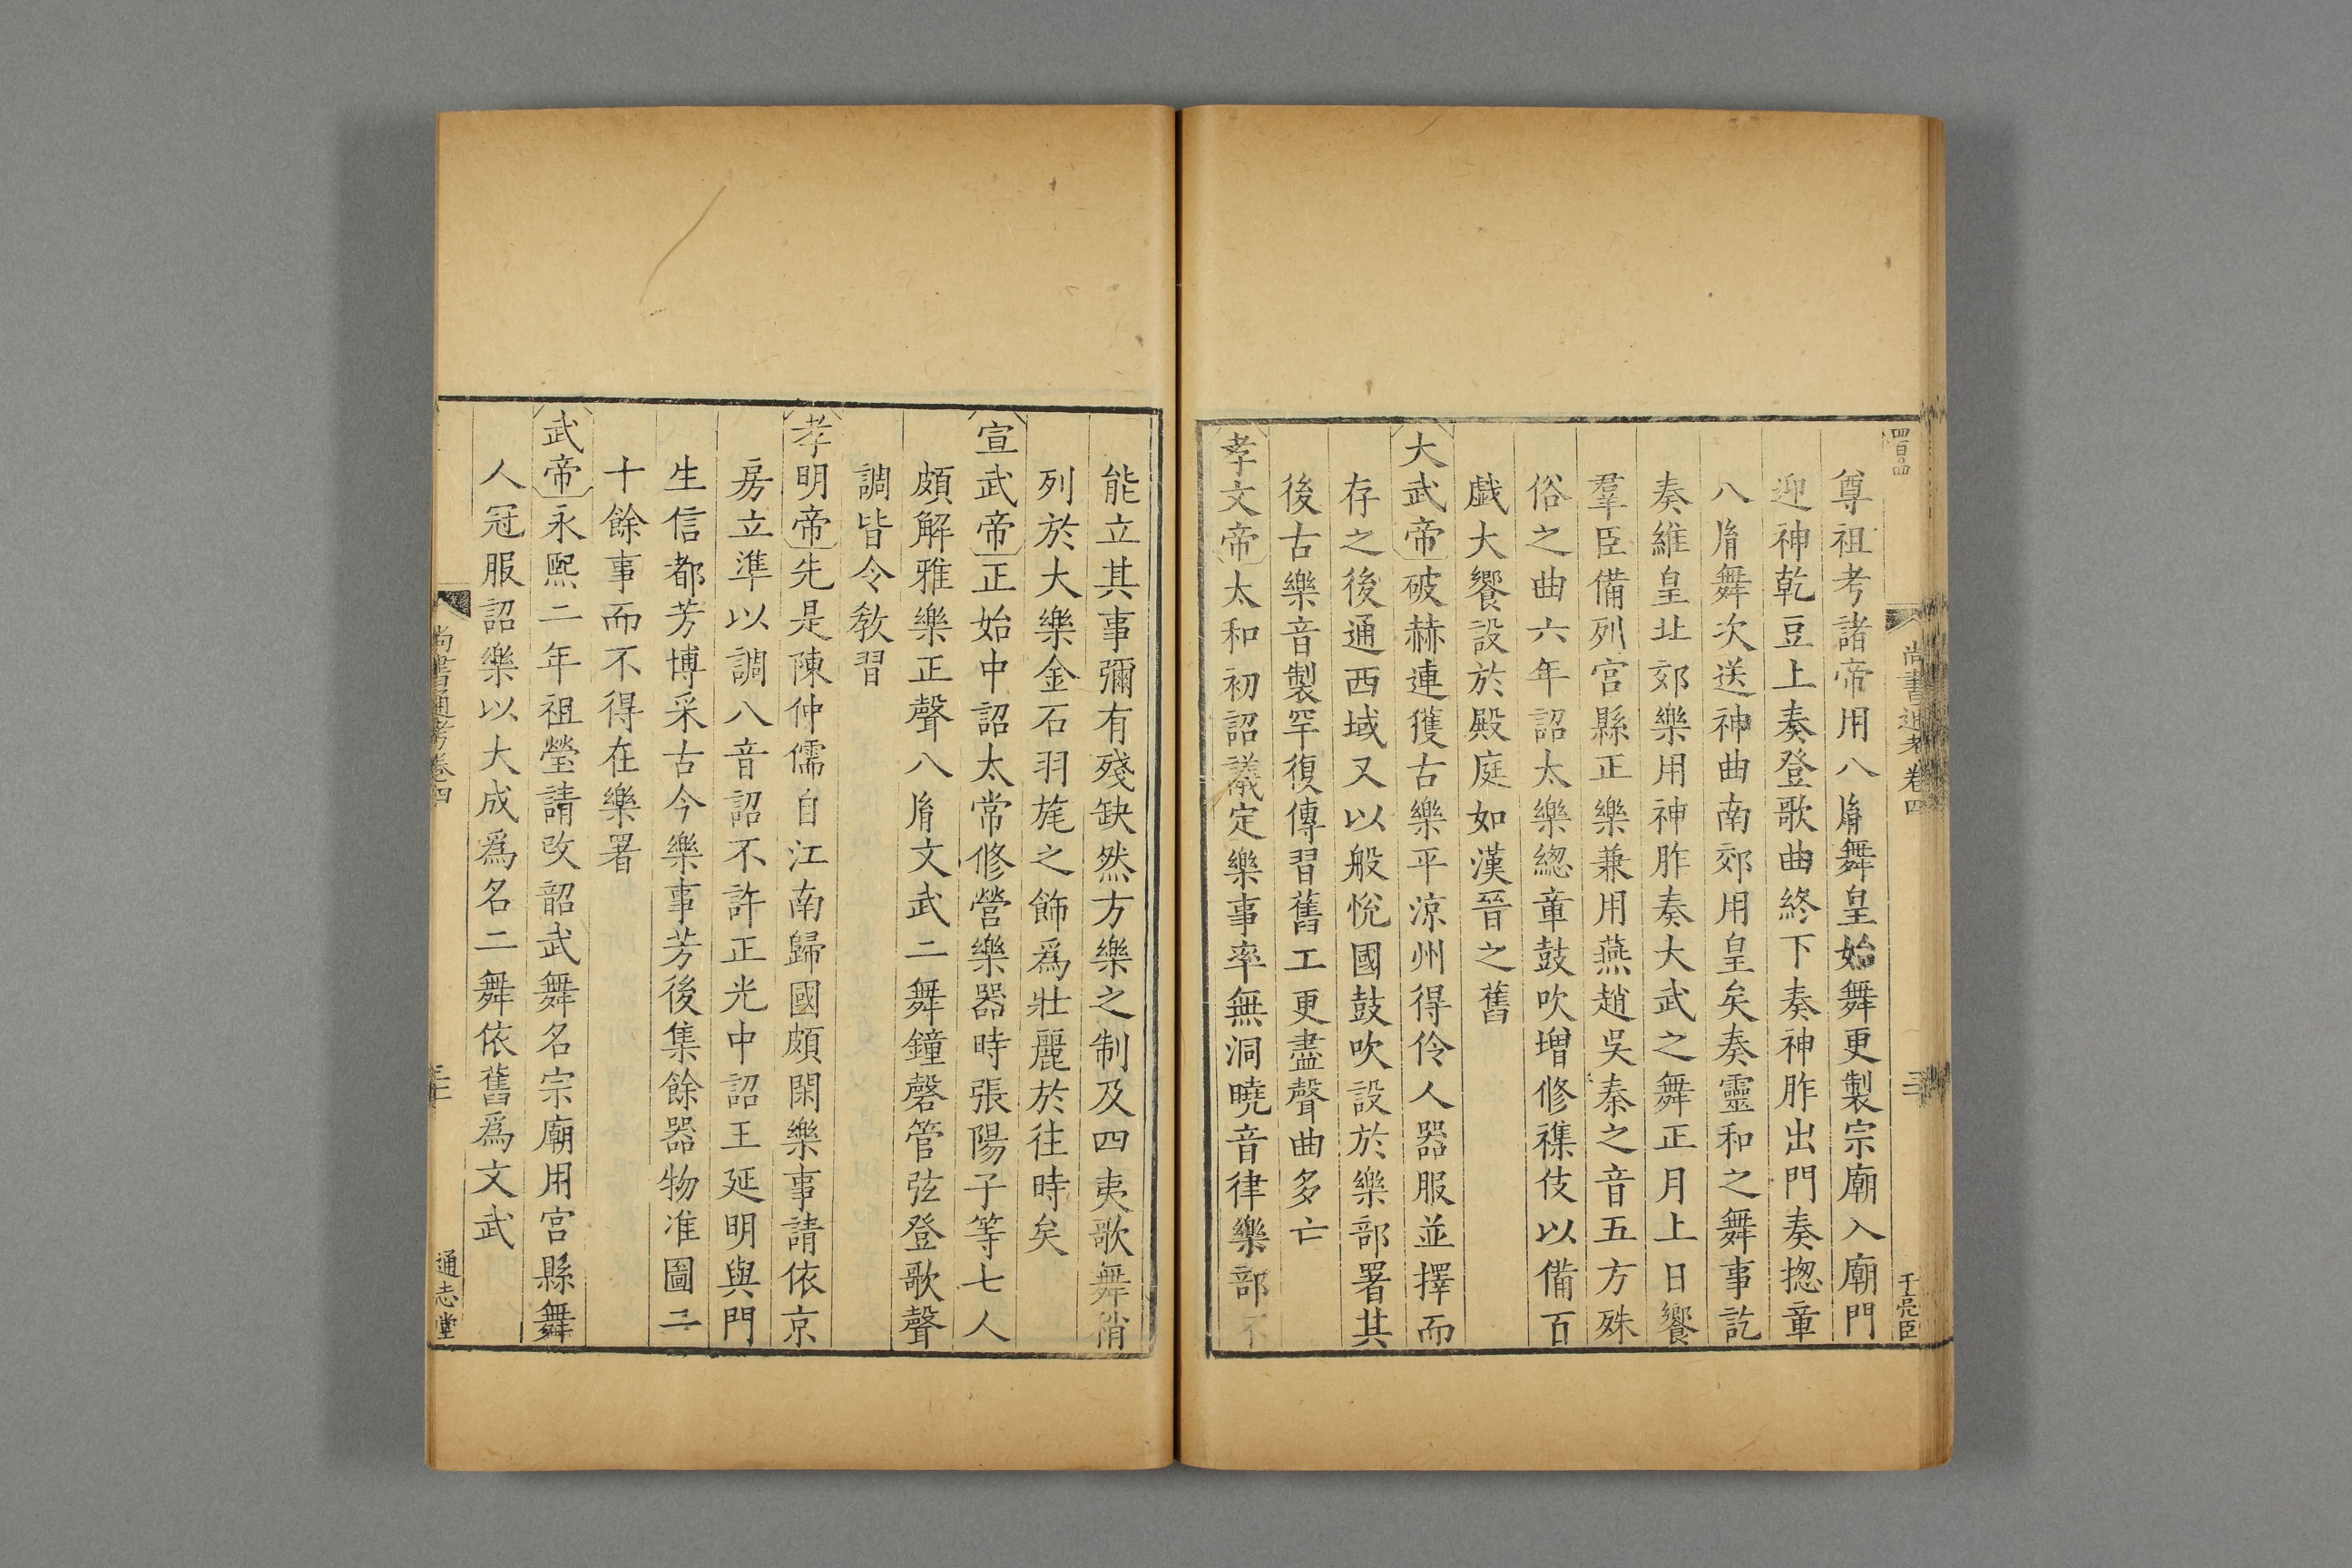 尚書通考卷四
尊祖考諸帝用八佾舞皇始舞更製宗廟入廟門
迎神乾豆上奏登歌曲終下奏神胙出門奏揔章
八佾舞次送神曲南郊用皇矣奏靈和之舞事訖
奏維皇北郊樂用神胙奏大武之舞正月上日饗
羣臣備列宫縣正樂兼用燕趙吳秦之音五方殊
俗之曲六年詔太樂緫章鼓吹增修襍伎以備百
戯大饗設於殿庭如漢晉之舊
大武帝破赫連獲古樂平涼州得伶人器服並擇而
存之後通西域又以般悅國鼓吹設於樂部署其
後古樂音製罕復傳習舊工更盡聲曲多亡
孝文帝太和初詔議定樂事率無洞曉音律樂部不
能立其事彌有殘缺然方樂之制及四夷歌舞稍
列於大樂金石羽旄之飾爲壯麗於往時矣
宣武帝正始中詔太常修營樂器時張陽子等七人
頗解雅樂正聲八佾文武二舞鐘磬管弦登歌聲
調皆令敎習
孝明帝先是陳仲儒自江南歸國頗閑樂事請依京
房立準以調八音詔不許正光中詔王延明與門
生信都芳博采古今樂事芳後集餘器物准圖二
十餘事而不得在樂署
武帝永熙二年祖瑩請改韶武舞名宗廟用宫縣舞
人冠服詔樂以大成爲名二舞依舊爲文武
尚書通考卷四
通志堂